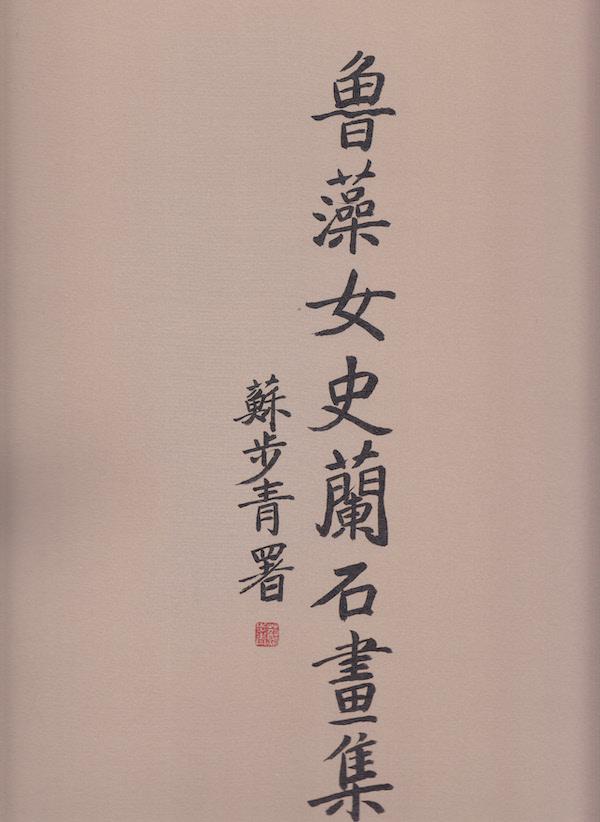 魯藻女史蘭石畫集
蘇步青署